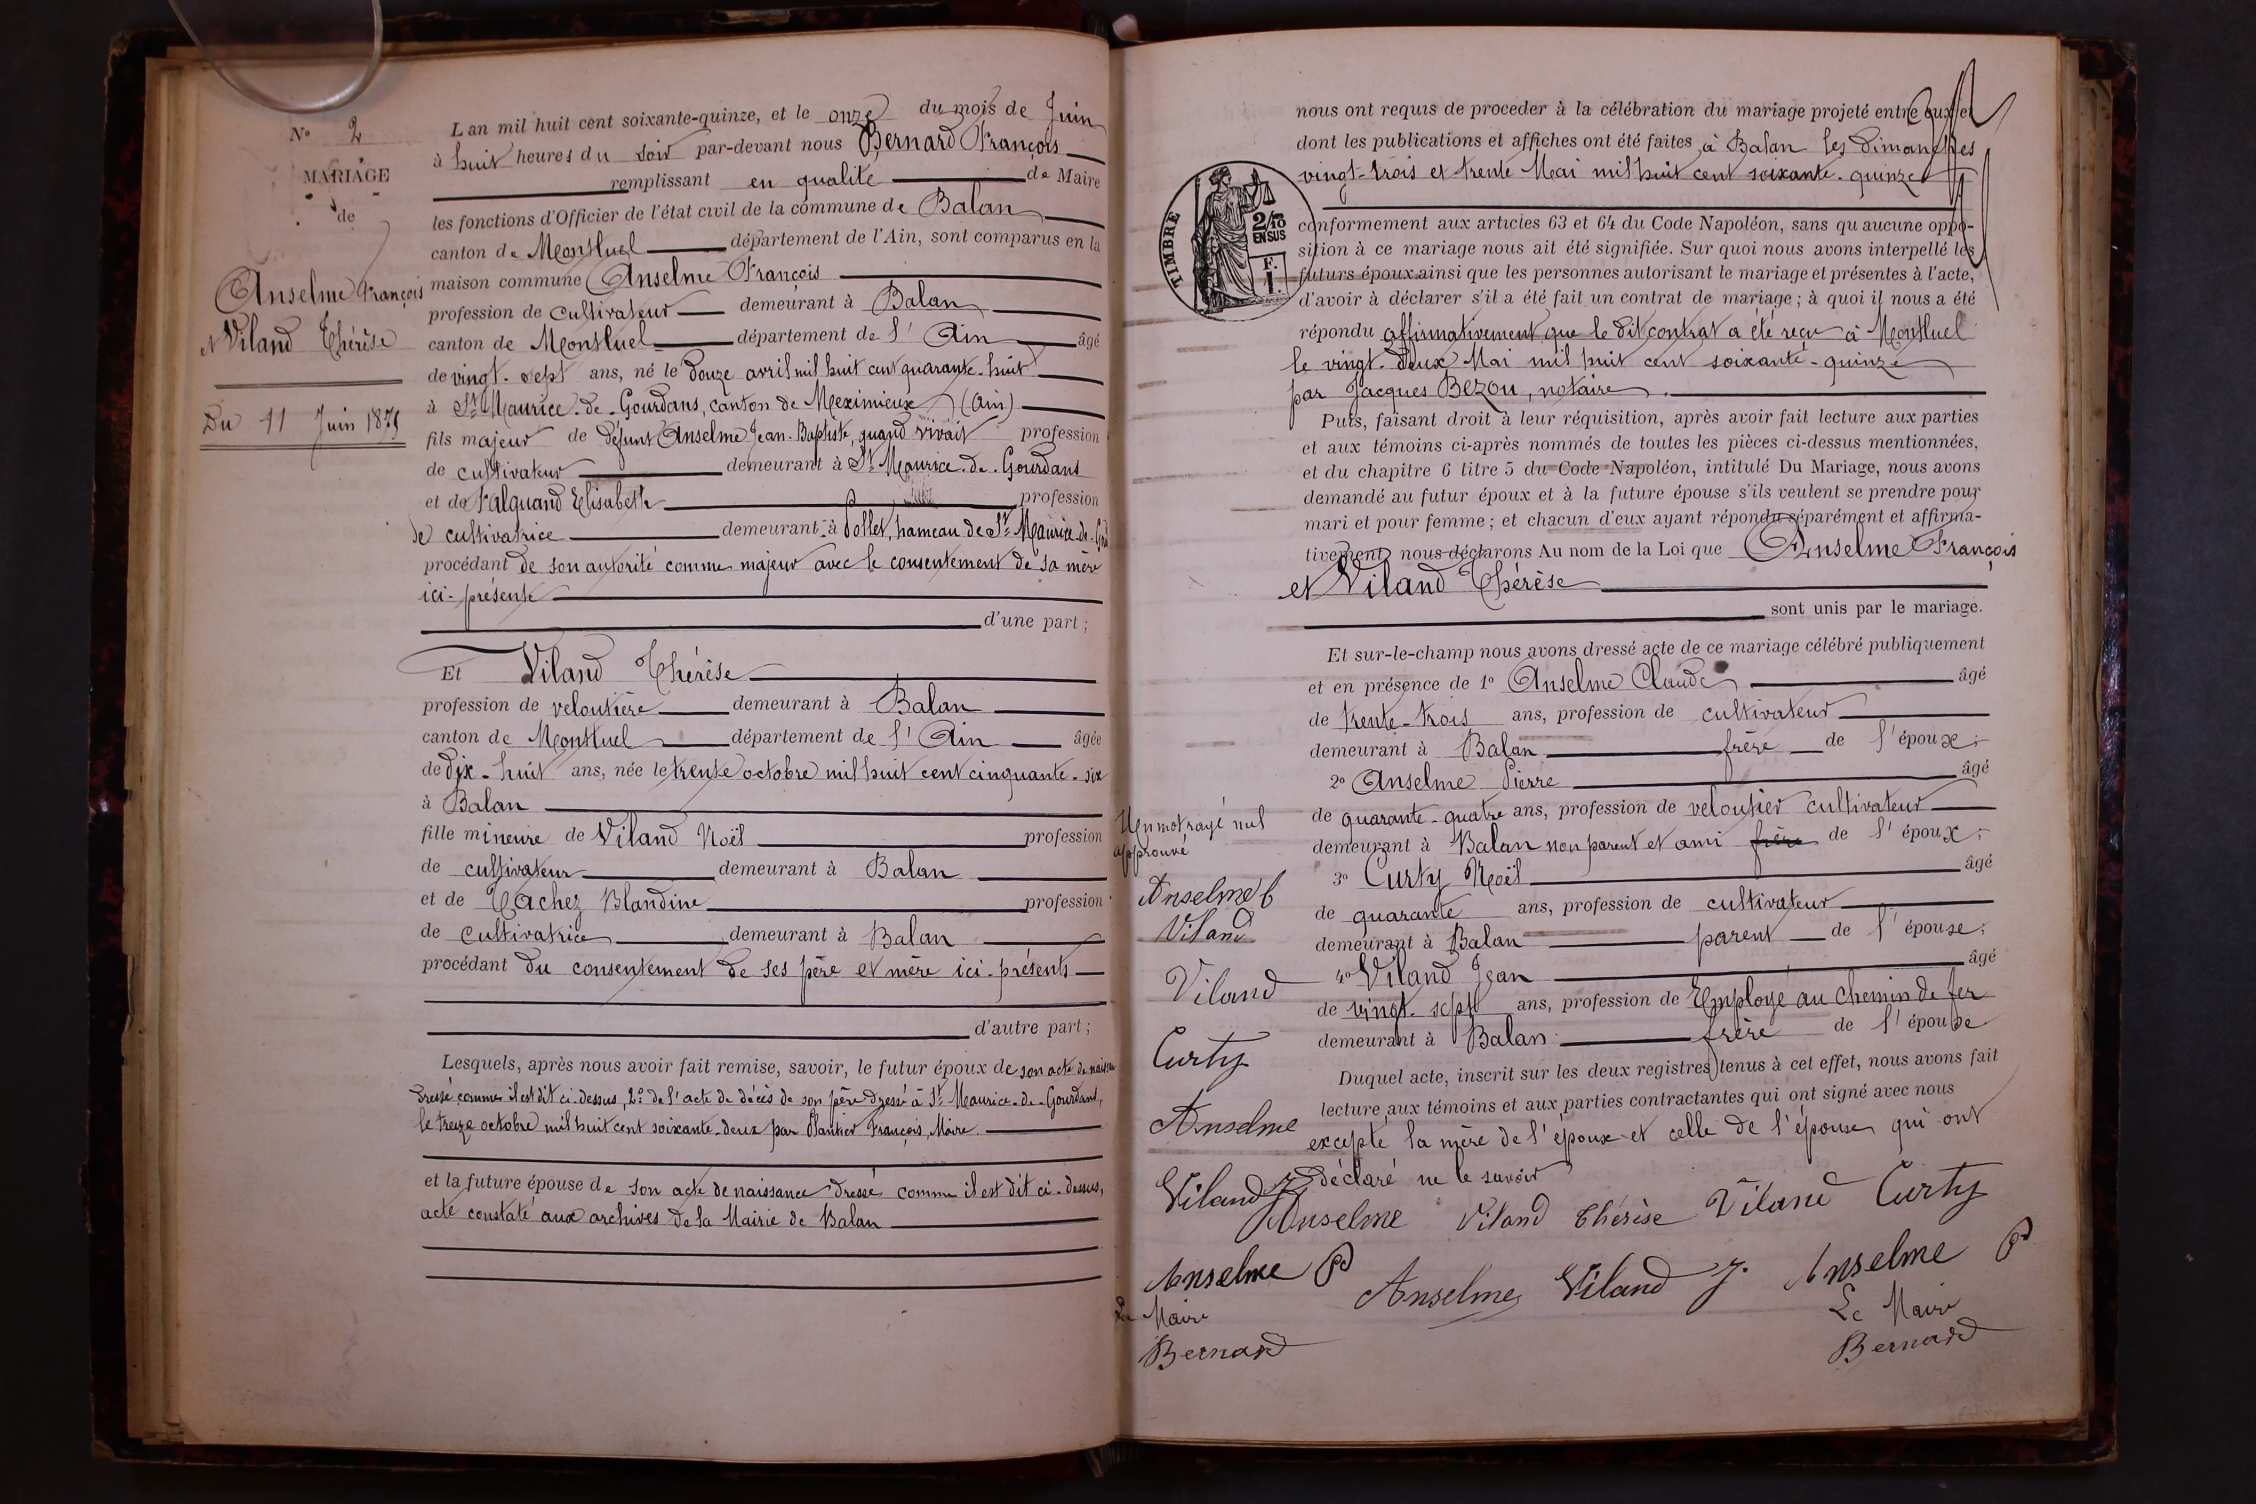 N° 2
MARIAGE
de
Anselme François
et Viland Thérèse
Du 11 Juin 1875
L'an mil huit cent soixante-quinze, et le onze du mois de Juin
à huit heures du soir par-devant nous Bernard François
remplissant en qualité de Maire
les fonctions d'Officier de l'état civil de la commune de Balan
canton de Montluel département de l'Ain, sont comparus en la
maison commune Anselme François
profession de cultivateur demeurant à Balan
canton de Montluel département de l'Ain âgé
de vingt-sept ans, né le douze avril mil huit cent quarante-huit
à St Maurice-de-Gourdans, canton de Meximieux (Ain)
fils majeur de défunt Anselme Jean-Baptiste, quand vivait profession
de cultivateur demeurant à St Maurice-de-Gourdans
et de Falquand Elisabeth profession
de cultivatrice demeurant à Pollet, hameau de St Maurice-de-Gds
procédant de son autorité comme majeur avec le consentement de sa mère
ici-présente
d'une part ;
Et Viland Thérèse
profession de veloutière demeurant à Balan
canton de Montluel département de l'Ain âgée
de dix-huit ans, née le trente octobre mil huit cent cinquante-six
à Balan
fille mineure de Viland Noël profession
de cultivateur demeurant à Balan
et de Cachez Blandine profession
de cultivatrice demeurant à Balan
procédant du consentement de ses père et mère ici-présents
d'autre part ;
Lesquels, après nous avoir fait remise, savoir, le futur époux de son acte de naissance
dressé comme il est dit ci-dessus, 2° de l'acte de décès de son père dressé à St Maurice-de-Gourdans,
le treize octobre mil huit cent soixante-deux par Plantier François, Maire.
et la future épouse de son acte de naissance dressé comme il est dit ci-dessus,
acte constaté aux archives de la Mairie de Balan
nous ont requis de proceder à la célébration du mariage projeté entre eux et
dont les publications et affiches ont été faites, à Balan les dimanches
vingt-trois et trente Mai mil huit cent soixante-quinze
TIMBRE
2/10
EN SUS
F.
1.
conformement aux articles 63 et 64 du Code Napoléon, sans qu'aucune oppo-
sition à ce mariage nous ait été signifiée. Sur quoi nous avons interpellé les
futurs époux ainsi que les personnes autorisant le mariage et présentes à l'acte,
d'avoir à déclarer s'il a été fait un contrat de mariage ; à quoi il nous a été
répondu affirmativement que le dit contrat a été reçu à Montluel
le vingt-deux Mai mil huit cent soixante-quinze
par Jacques Bezou, notaire.
Puis, faisant droit à leur réquisition, après avoir fait lecture aux parties
et aux témoins ci-après nommés de toutes les pièces ci-dessus mentionnées,
et du chapitre 6 titre 5 du Code Napoléon, intitulé Du Mariage, nous avons
demandé au futur époux et à la future épouse s'ils veulent se prendre pour
mari et pour femme ; et chacun d'eux ayant répondu séparément et affirma-
tivement, nous déclarons Au nom de la Loi que Anselme François
et Viland Thérèse
sont unis par le mariage.
Et sur-le-champ nous avons dressé acte de ce mariage célébré publiquement
et en présence de 1° Anselme Claude âgé
de trente-trois ans, profession de cultivateur
demeurant à Balan frère de l'époux ;
2° Anselme Pierre âgé
de quarante-quatre ans, profession de veloutier cultivateur
demeurant à Balan non parent et ami frère de l'époux ;
3° Curty Noël âgé
de quarante ans, profession de cultivateur
demeurant à Balan parent de l'épouse ;
4° Viland Jean âgé
de vingt-sept ans, profession de Employé au chemin de fer
demeurant à Balan frère de l'épouse
Duquel acte, inscrit sur les deux registres tenus à cet effet, nous avons fait
lecture aux témoins et aux parties contractantes qui ont signé avec nous
excepté la mère de l'époux et celle de l'épouse qui ont
déclaré ne le savoir
Un mot rayé nul
approuvé
Anselme C
Viland
Viland
Curty
Anselme
Viland J
Anselme P
Le Maire
Bernard
Anselme Viland Thérèse Viland Curty
Anselme Viland J. Anselme P
Le Maire
Bernard